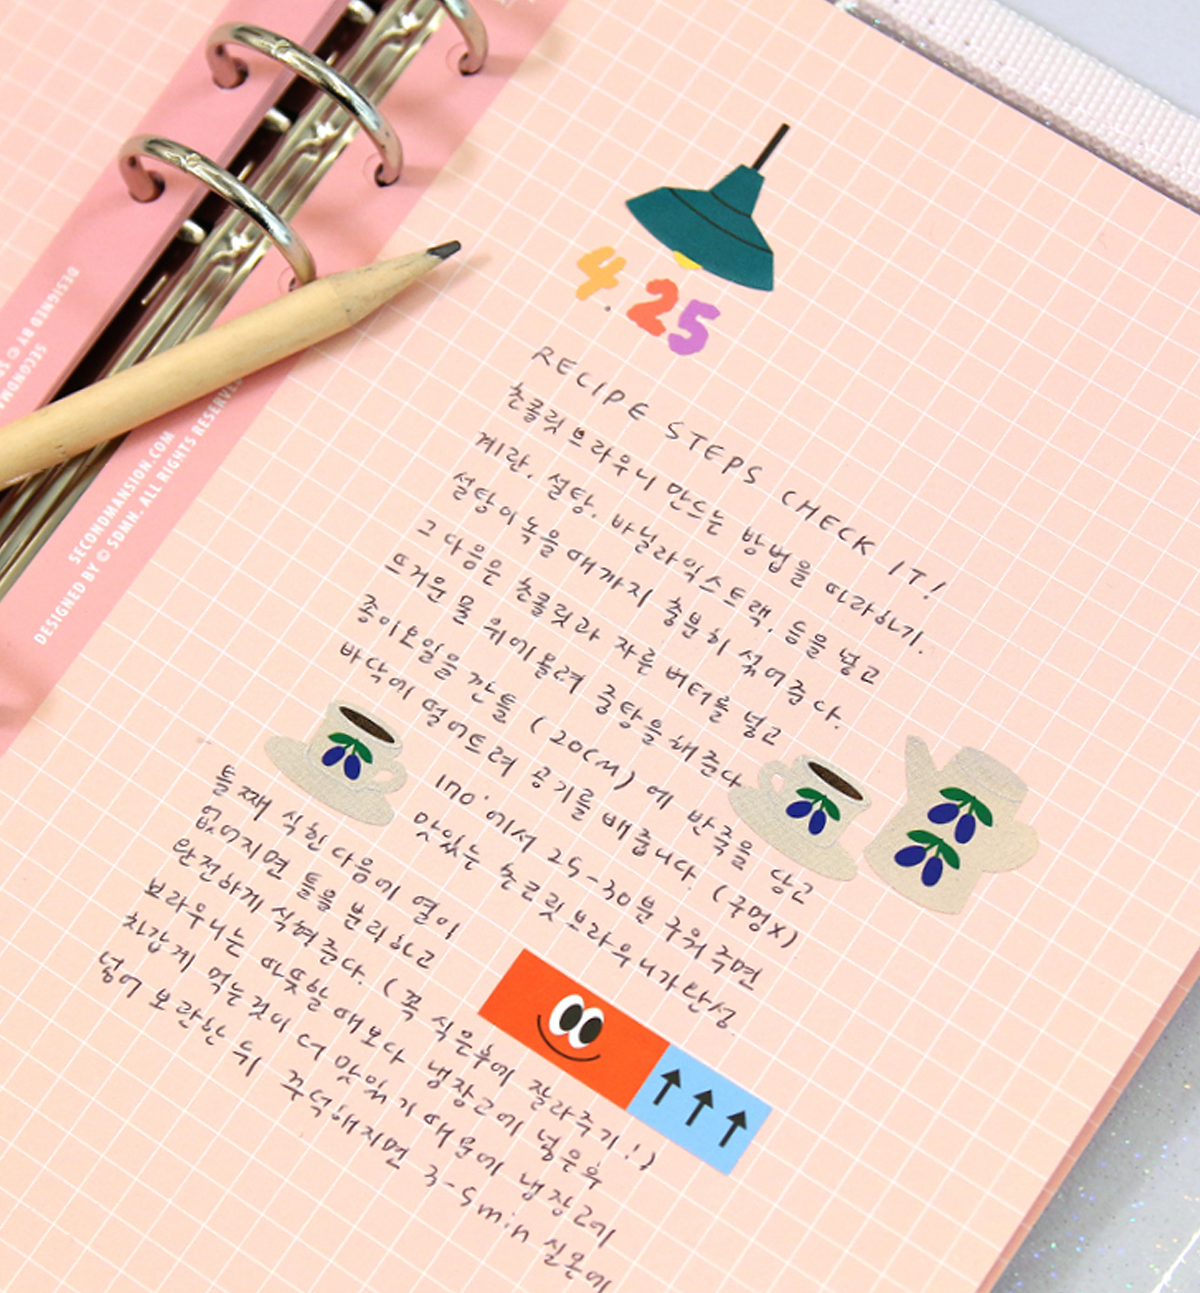 4.25
RECIPE STEPS CHECK IT!
초콜릿 브라우니 만드는 방법을 따라하기.
계란, 설탕, 바닐라익스트랙, 등을 넣고
설탕이 녹을 때까지 충분히 섞어준다.
그 다음은 초콜릿과 자른 버터를 넣고
뜨거운 물 위에 올려 중탕을 해준다
종이호일을 깐 틀 (20CM) 에 반죽을 담고
바닥에 떨어트려 공기를 빼줍니다. (구멍X)
170°에서 25-30분 구워주면
맛있는 초코릿브라우니가 완성.
틀째 식힌 다음에 열이
없어지면 틀을 분리하고
완전하게 식혀준다. (꼭 식은후에 잘라주기!)
브라우니는 따뜻할 때보다 냉장고에 넣은후
차갑게 먹는것이 더 맛있기 때문에 냉장고에
넣어 보관한 뒤 꾸덕해지면 3-5min 실온에
SECONDMANSION.COM
DESIGNED BY © SDMN. ALL RIGHTS RESERVED
DESIGNED BY ©